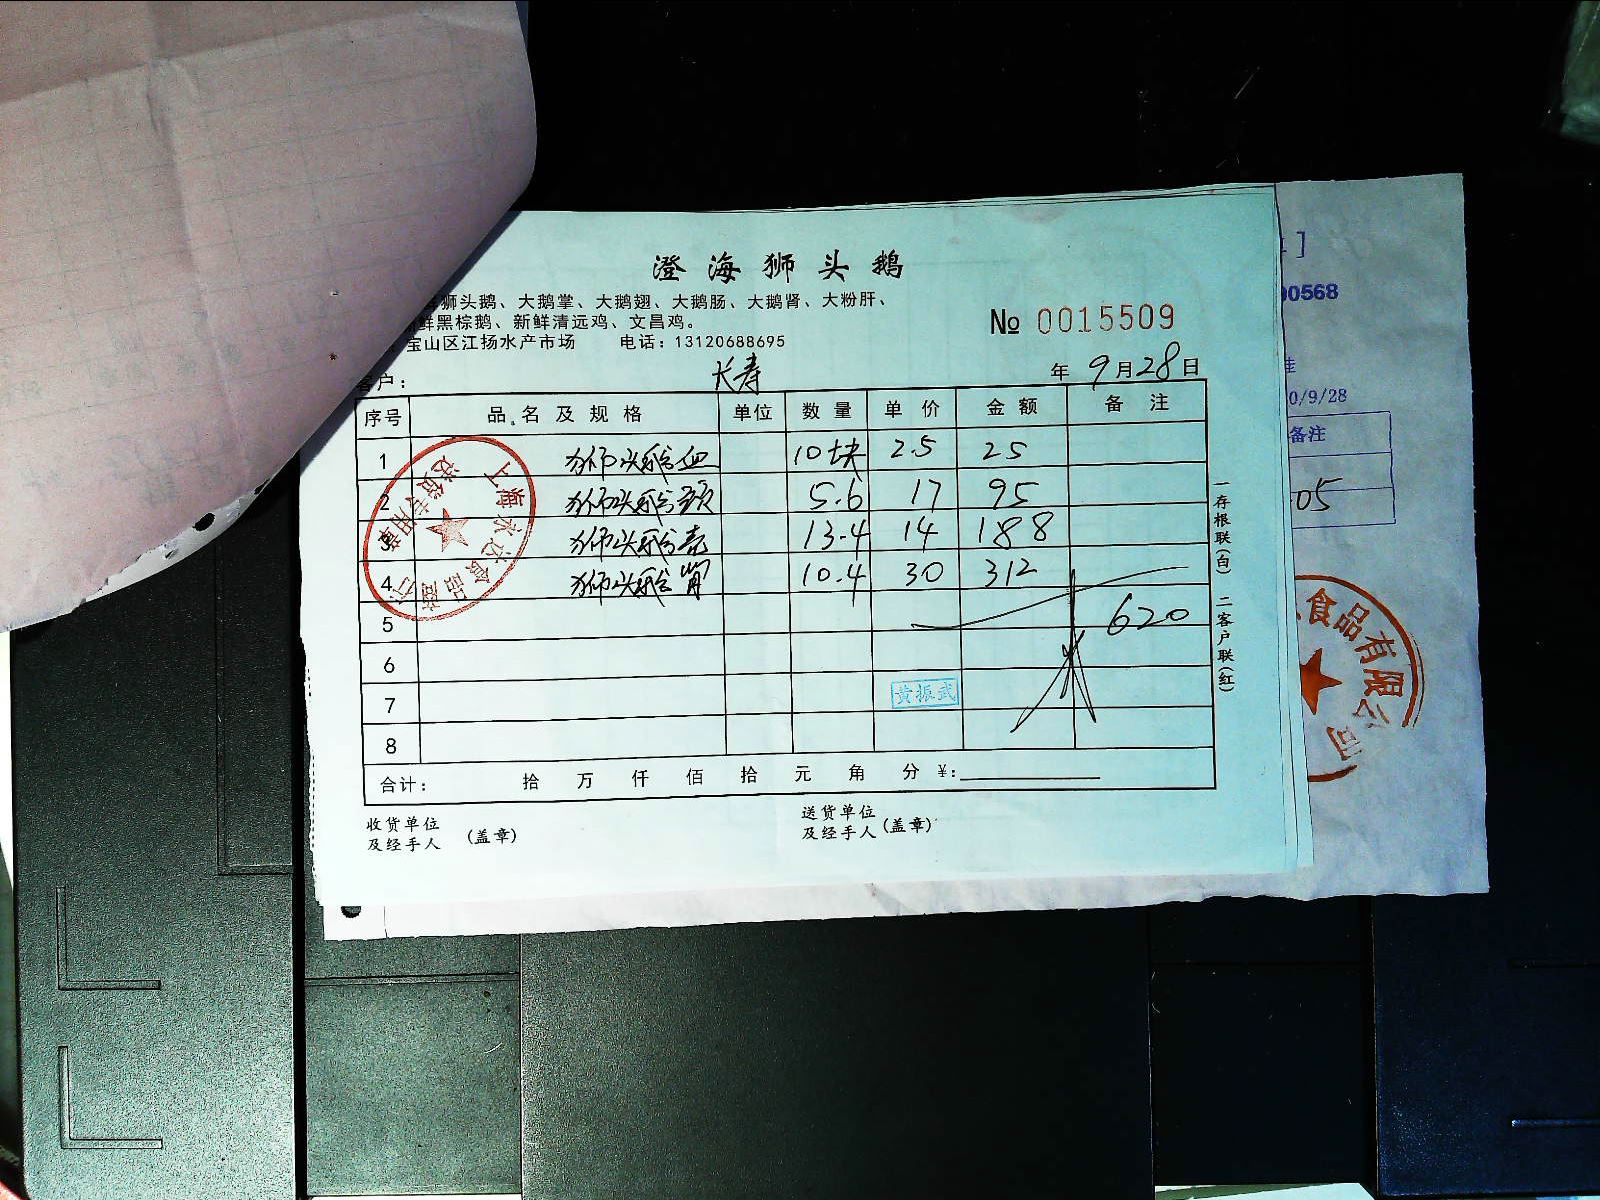 澄海狮头鹅
狮头鹅、大鹅掌、大鹅翅、大鹅肠、大鹅肾、大粉肝、
鲜黑棕鹅、新鲜清远鸡、文昌鸡。
宝山区江扬水产市场 电话:13120688695
№ 0015509
客户: 长寿 年 9月28日
序号 品名及规格 单位 数量 单价 金额 备注
1 狮头鹅血 10块 2.5 25
2 狮头鹅头 5.6 17 95
3 狮头鹅壳 13.4 14 188
4 狮头鹅胃 10.4 30 312
5 620
6
7 黄振武
8
合计: 拾 万 仟 佰 拾 元 角 分 ¥:
收货单位
及经手人 (盖章)
送货单位
及经手人 (盖章)
一存根联(白) 二客户联(红)
上海永达食品商行
送货专用章
]
00568
0/9/28
备注
05
食品有限公司